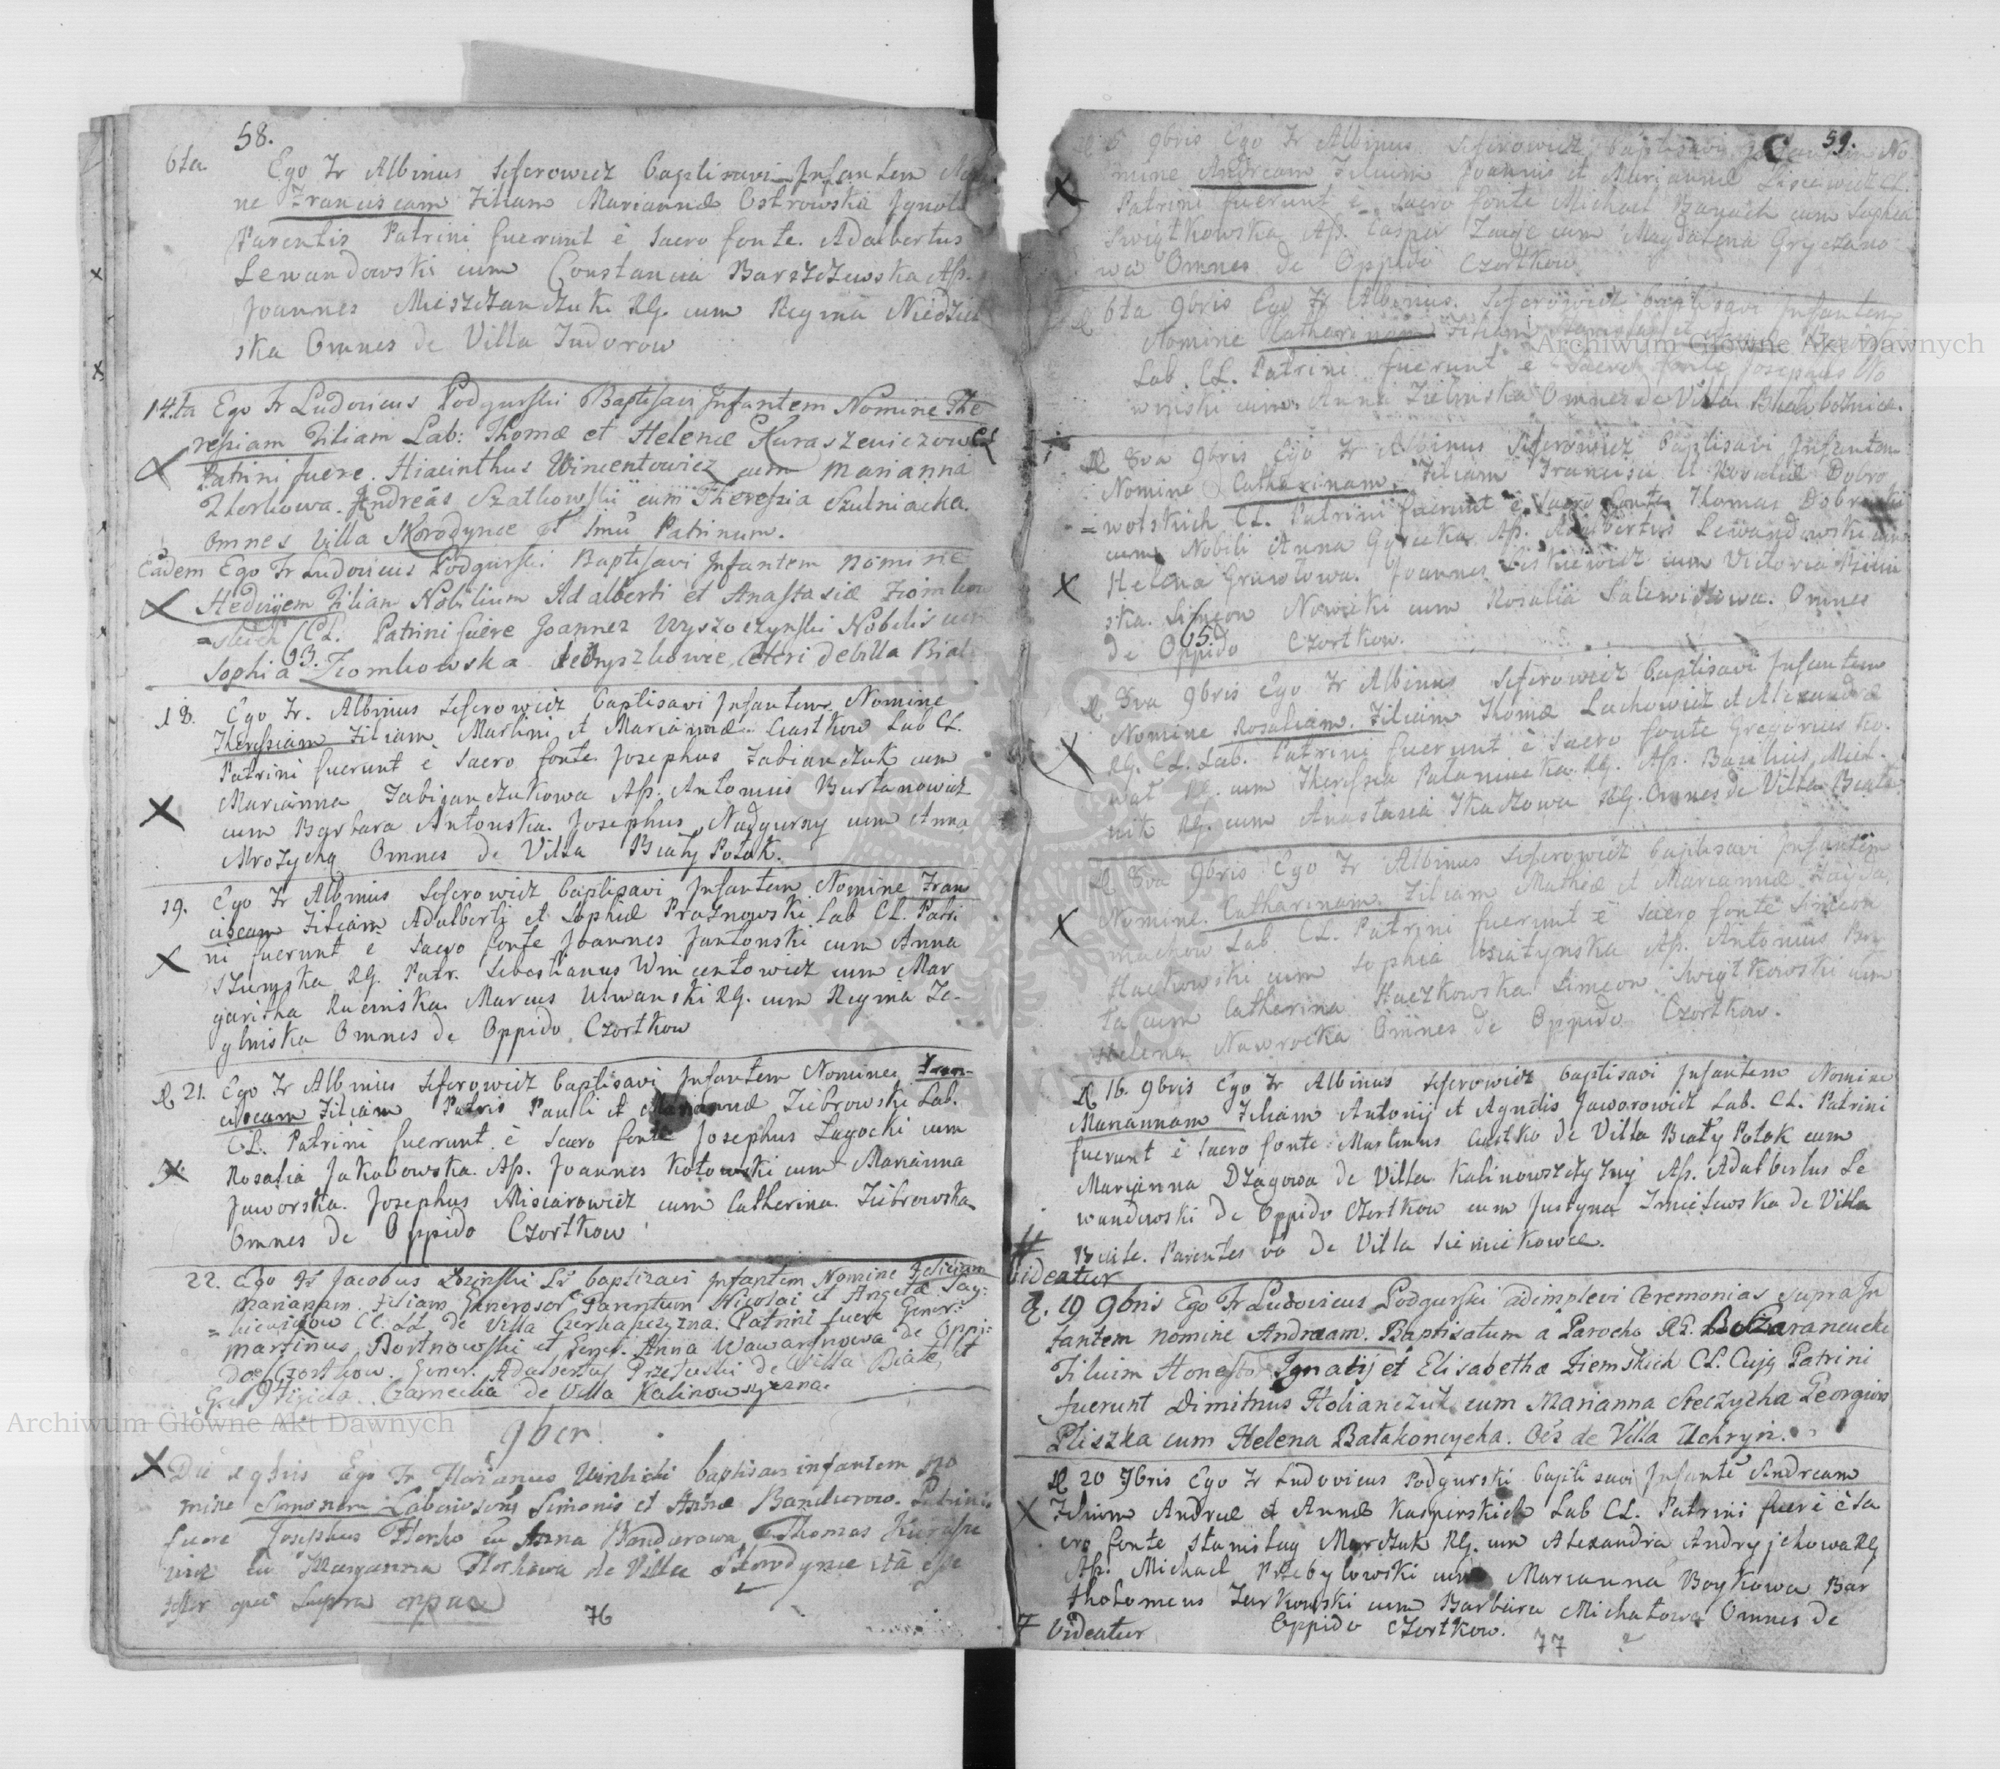 58.
6ta Ego Fr Albinus Seferowicz baptisavi Infantem
ne Franciscam Filiam Mariannæ Ostrowska Ignoti
Parentis Patrini fuerunt è Sacro fonte. Adalbertus
Lewandowski cum Constancia Barszczewska As.
Joannes Mieszczanczuk RG. cum Regina
ska Omnes de Villa Judorow
14.ta Ego Fr Ludovicus Podgurski Baptisavi Infantem Nomine The
resiam Filiam Lab: Thomæ et Helenæ Kuraszewiczow CL
Patrini fuere. Hiacinthus Wincentowicz cum Marianna
Horkowa. Andreas Szatkowski cum Theresia Szulniacka.
Omnes Villa Skorodynce et Imū Patrinum.
Eadem Ego Fr Ludovicus Podgurski Baptisavi Infantem Nomine
Hedvigem Filiam Nobilium Adalberti et Anastasiæ
CL. Patrini fuere Joannes Wyszoczynski Nobilis cum
Sophia Ziomkowska. Ceteri de Villa
93.
18. Ego Fr. Albinus Seferowicz baptisavi Infantem Nomine
Theressiam Filiam Martini et Mariannæ Ciastkow Lab CL.
Patrini fuerunt è Sacro fonte Josephus Fabianczuk cum
Marianna Fabijanczukowa As. Antonius Burtanowicz
cum Barbara Antonska. Josephus Nadgurny cum Anna
Mrozycha Omnes de Villa Biały Potok.
19. Ego Fr Albinus Seferowicz baptisavi Infantem Nomine Fran
ciscam Filiam Adalberti et Sophiæ Praznowski Lab CL. Patri
ni fuerunt è Sacro fonte Joannes Jantonski cum Anna
Szumska RG. Patr. Sebastianus Wincentowicz cum Mar
garitha Rucinska. Marcus Uswanski RG. cum Regina Ze-
glinska Omnes de Oppido Czortkow
D 21. Ego Fr Albinus Seferowicz baptisavi Infantem Nomine Fran-
ciscam Filiam Patris Paulli et Mariannæ Ziebrowski Lab.
CL. Patrini fuerunt è Sacro fonte Josephus Lagocki cum
Rosalia Jakobowska As. Joannes Kotowski cum Marianna
Jaworska. Josephus Misiarowicz cum Catherina Ziebrowska
Omnes de Oppido Czortkow
22. Ego Fr Jacobus Łozinski baptizavi Infantem Nomine Feliciam
Mariannam Filiam Generosor Parentum Nicolai et Angelæ
de Villa Czerkaszczyzna. Patrini fuere Gener:
Martinus Bortnowski et Gener. Anna Wawartnowa de Oppi:
do Czortkow. Gener. Adalbertus Przełuski de Villa Biała, et
Czarnecka de Villa Kalinowszczyzna.
9ber.
Die 1 9bris Ego Fr Florianus Winlicki baptisavi infantem no
mine Simonem Laboriosoru Simonis et Annæ Bandurow. Patrini
fuere Josephus Horko cū Anna Bandurowa, Thomas
cū Marjanna Horkowa de Villa Skorodynce ità
qui Supra
76
59.
D 5 9bris Ego Fr Albinus Seferowicz baptisavi Infantem No
mine Andream Filium Joannis et Mariannæ Lisiewicz CL.
Patrini fuerunt è Sacro fonte Michael Banach cum Sophia
Swiątkowska As. Casper Zając cum Magdalena Gryczano
wa Omnes de Oppido Czortkow
D 6ta 9bris Ego Fr Albinus Seferowicz baptisavi Infantem
Nomine Catharinam Filiam
Lab. CL. Patrini fuerunt è Sacro fonte Josephus No
winski cum Anna Zielinska Omnes de Villa Białobożnica.
D 8va 9bris Ego Fr Albinus Seferowicz baptisavi Infantem
Nomine Catherinam Filiam Francisci et Rosaliæ Dobro
=wolskich CL. Patrini fuerunt è Sacro fonte Thomas
cum Nobili Anna Gorecka As. Adalbertus Lewandowski cum
Helena Gruntowa. Joannes Liskiewicz cum Victoria
ska. Simeon Nowicki cum Rosalia Salewiczowa. Omnes
de Oppido Czortkow.
65.
D 8va 9bris Ego Fr Albinus Seferowicz baptisavi Infantem
Nomine Rosaliam Filiam Thomæ Lachowicz et Alexandræ
RG. CL. Lab. Patrini fuerunt è Sacro fonte Gregorius Ko
wal RG. cum Theressia Palamucka RG. As. Basilius Miel-
nik RG. cum Anastasia Tkaczowa RG. Omnes de Villa Biała
D 8va 9bris Ego Fr Albinus Seferowicz baptisavi Infantem
Nomine Catharinam Filiam Mathiæ et Mariannæ Hayda
machow Lab. CL. Patrini fuerunt è Sacro fonte Simeon
Haczkowski cum Sophia Usiatynska As. Antonius
ta cum Catherina Haczkowska Simeon Swiątkowski cum
Helena Nawrocka Omnes de Oppido Czortkow.
D 16. 9bris Ego Fr Albinus Seferowicz baptisavi Infantem Nomine
Mariannam Filiam Antonij et Agnetis Jaworowicz Lab. CL. Patrini
fuerunt è Sacro fonte Martinus Ciastko de Villa Biały Potok cum
Marianna Dzagowa de Villa Kalinowszczyzny As. Adalbertus Le
wandowski de Oppido Czortkow cum Justyna Zmielewska de Villa
Parentes vō de Villa Siemiekowce.
# Videatur
D. 19 9bris Ego Fr Ludovicus Podgurski adimplevi Ceremonias Supra In
fantem nomine Andream. Baptisatum a Parocho RG.
Filium Honesto. Ignatij et Elisabethæ Ziemskich CL. Cujq Patrini
fuerunt Dimitrius Holianczuk cum Marianna Steczycha Georgius
Pliszka cum Helena Batakoncycha. Oēs de Villa Uchryn.
D 20 9bris Ego Fr Ludovicus Podgurski baptisavi Infantē Andream
Filium Andreæ et Annæ Kasperskich Lab CL. Patrini fuere è Sa
cro fonte Stanislaq Marczuk RG. cum Alexandra Andryjchowa RG
As. Michael Przebyłowski cum Marianna Boykowa Bar
tholomeus Zurkowski cum Barbara Michałowa Omnes de
Oppido Czortkow.
Videatur
77
Archiwum Główne Akt Dawnych
Archiwum Główne Akt Dawnych